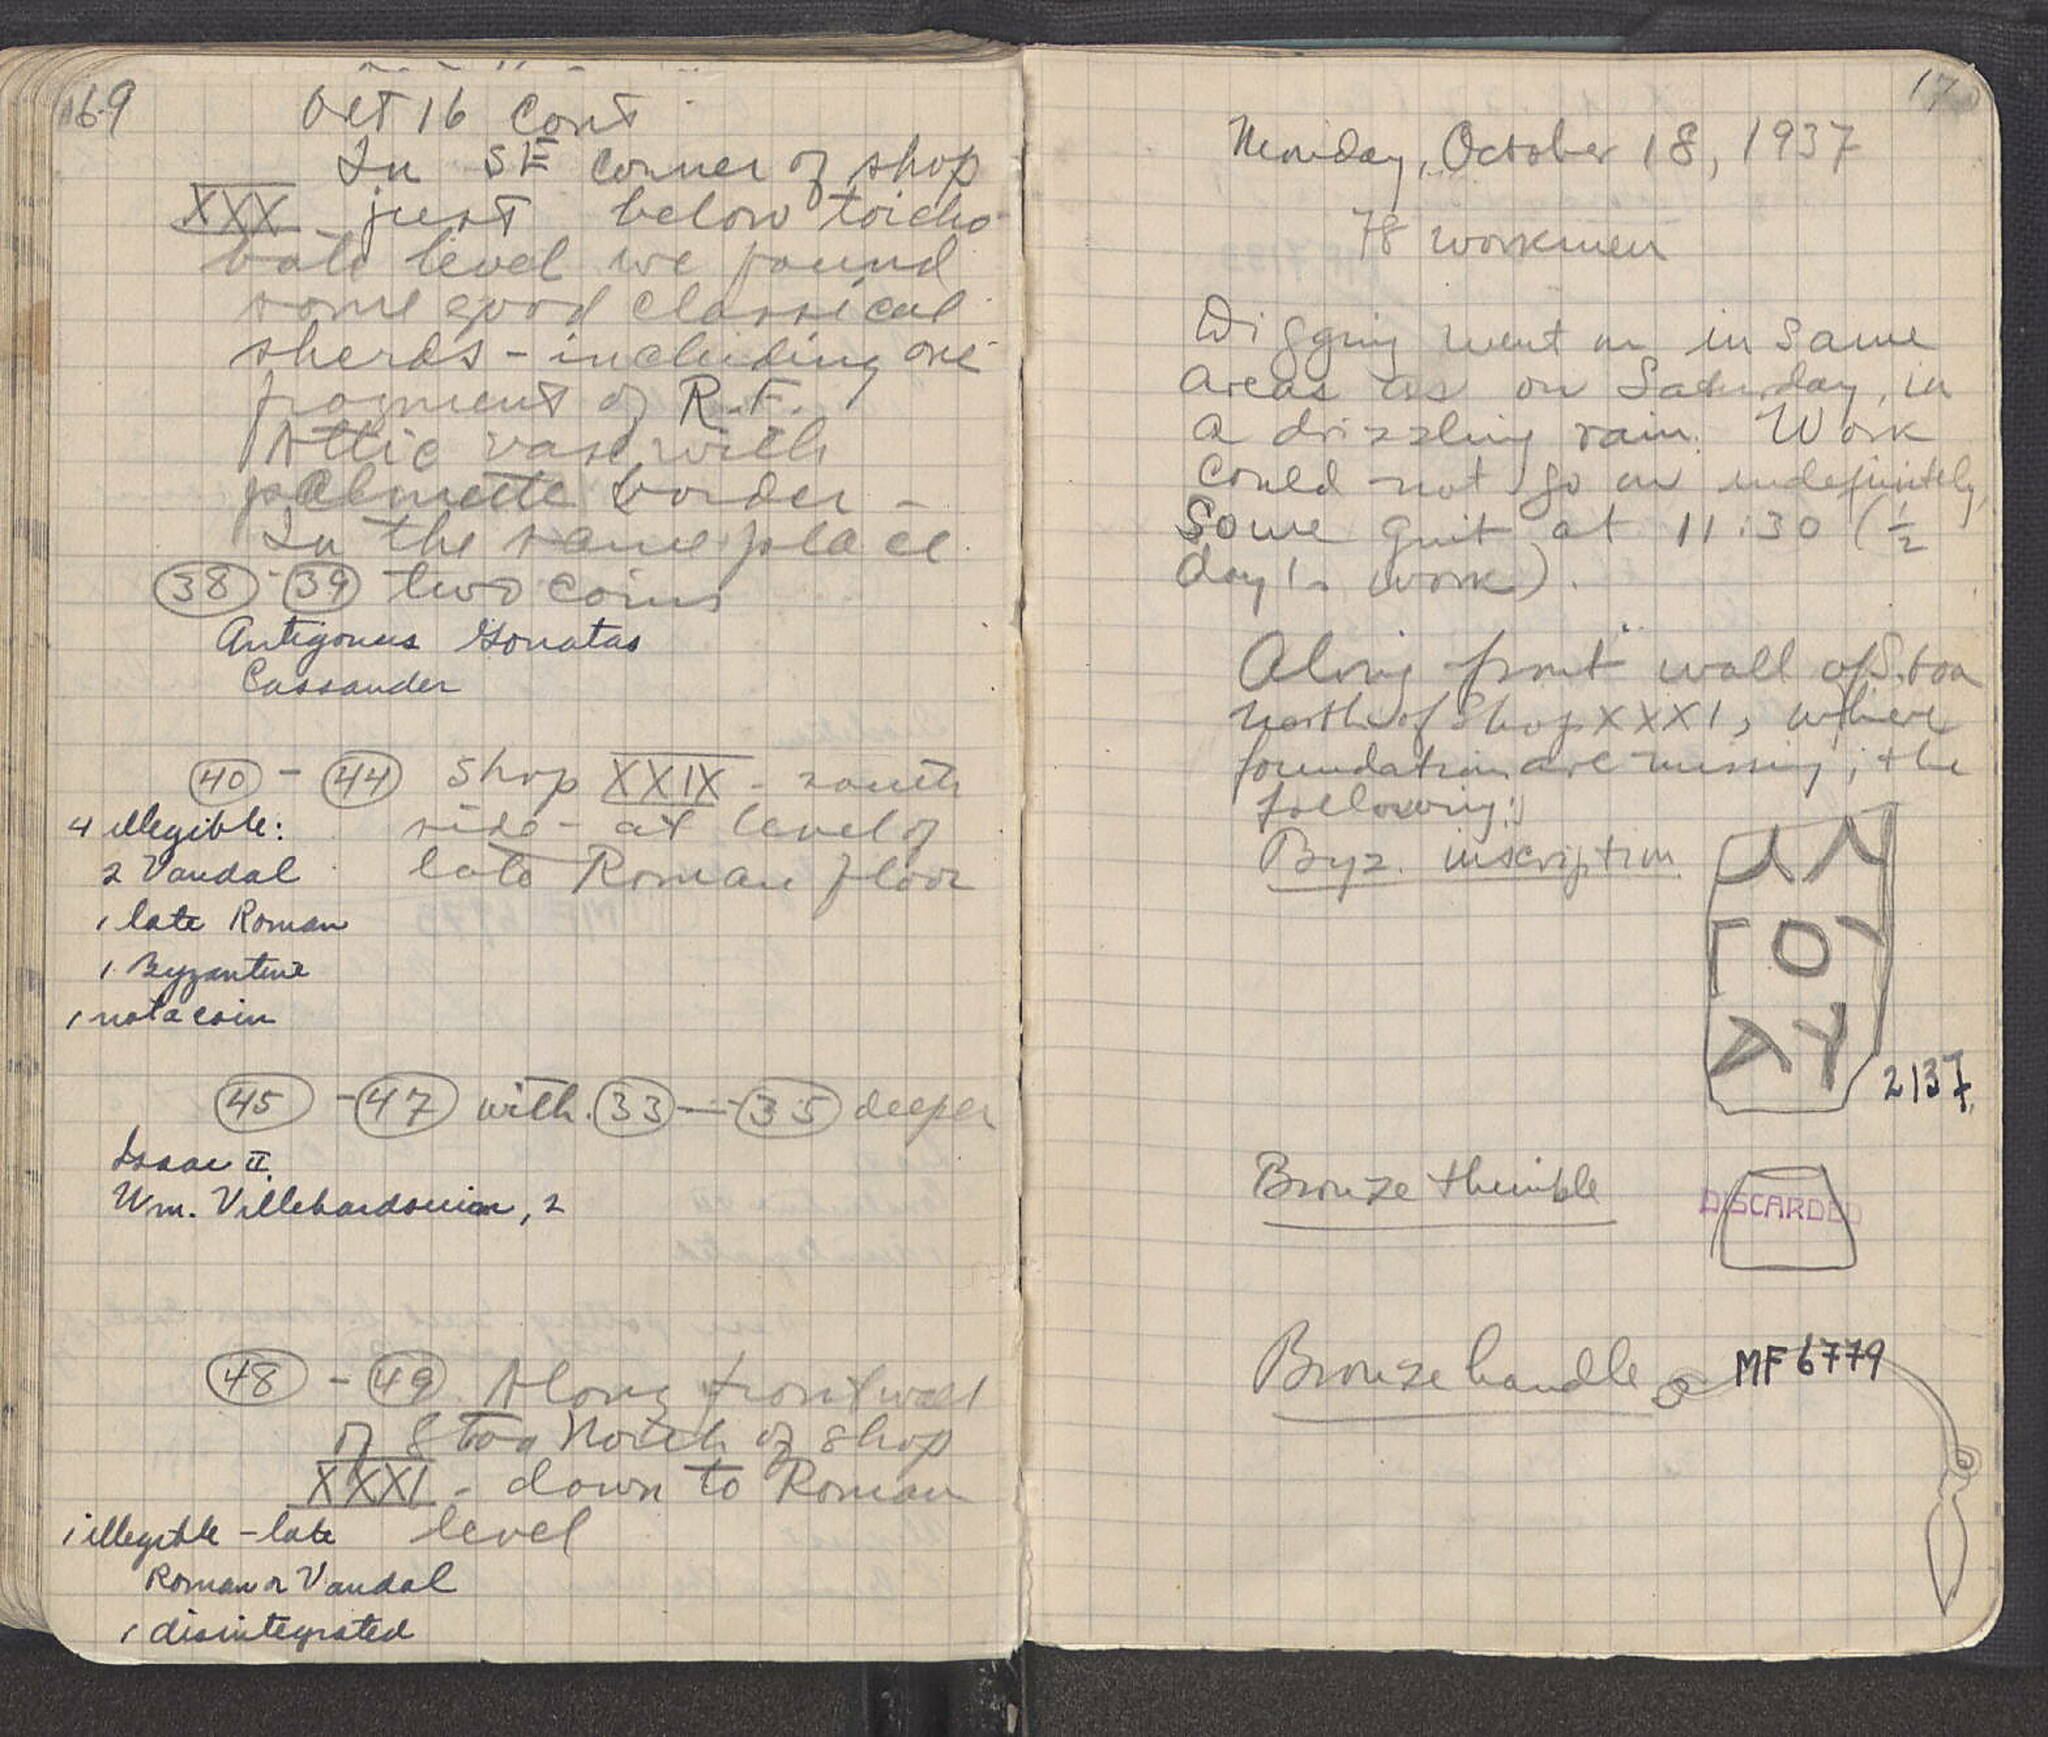 169
Oct 16 Cont
In SE corner of shop
XXX - just below toicho
bate level we found
some good classical
sherds - including one
fragment of R.F.
Attic vase with
palmette border -
In the same place
38 - 39 two coins
Antigonus Gonatas
Cassander
40 - 44 Shop XXIX - south
4 illegible: side - at level of
2 Vandal late Roman floor
1 late Roman
1 Byzantine
1 not a coin
45 - 47 with 33 — 35 deeper
Isaac II
Wm. Villehardouin, 2
48 - 49 Along front wall
of Stoa North of shop
XXXI - down to Roman
1 illegible - late level
Roman or Vandal
1 disintegrated
17
Monday, October 18, 1937
78 workmen
Digging went on in same
areas as on Saturday, in
a drizzling rain. Work
could not go on indefinitely,
Some quit at 11:30 (1/2
day's work).
Along front wall of Stoa
north of Shop XXXI, where
foundations are missing, the
following:
Byz. inscription
ΓΟ
2137
Bronze thimble
DISCARDED
Bronze handle
MF 6779